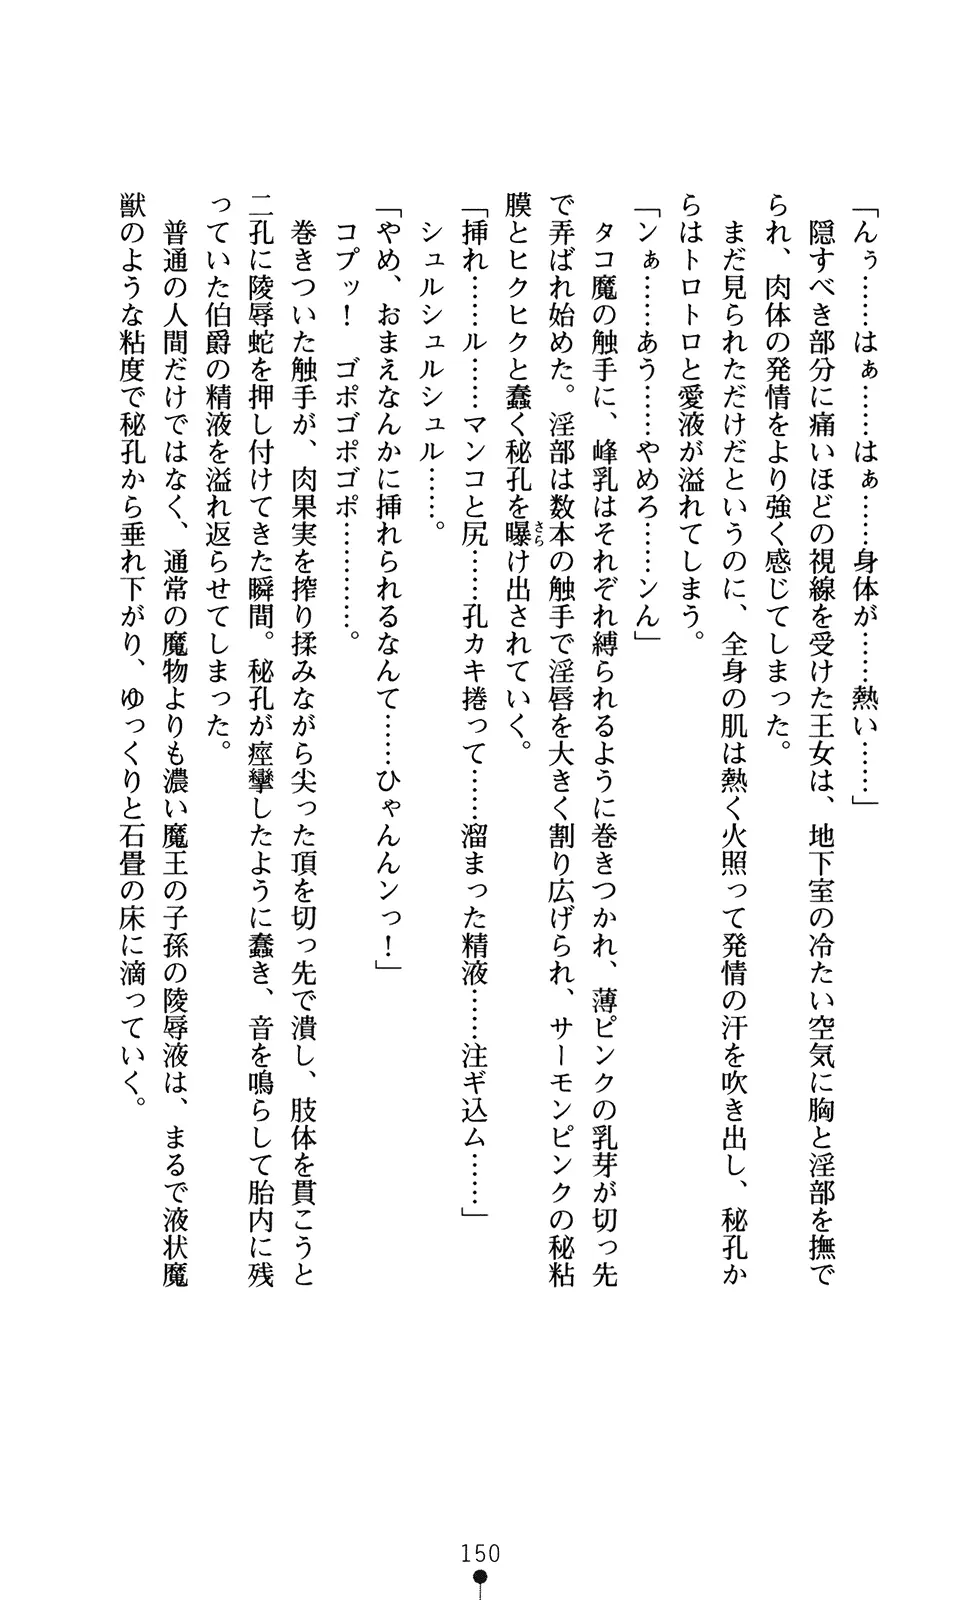 「んぅ……はぁ……はぁ……身体が……熱い……」
　隠すべき部分に痛いほどの視線を受けた王女は、地下室の冷たい空気に胸と淫部を撫で
られ、肉体の発情をより強く感じてしまった。
　まだ見られただけだというのに、全身の肌は熱く火照って発情の汗を吹き出し、秘孔か
らはトロトロと愛液が溢れてしまう。
「ンぁ……あう……やめろ……ンん」
　タコ魔の触手に、峰乳はそれぞれ縛られるように巻きつかれ、薄ピンクの乳芽が切っ先
で弄ばれ始めた。淫部は数本の触手で淫唇を大きく割り広げられ、サーモンピンクの秘粘
膜とヒクヒクと蠢く秘孔を曝さらけ出されていく。
「挿れ……ル……マンコと尻……孔カキ捲って……溜まった精液……注ギ込ム……」
　シュルシュルシュル……。
「やめ、おまえなんかに挿れられるなんて……ひゃんんンっ！」
　コプッ！　ゴポゴポゴポ…………。
　巻きついた触手が、肉果実を搾り揉みながら尖った頂を切っ先で潰し、肢体を貫こうと
二孔に陵辱蛇を押し付けてきた瞬間。秘孔が痙攣したように蠢き、音を鳴らして胎内に残
っていた伯爵の精液を溢れ返らせてしまった。
　普通の人間だけではなく、通常の魔物よりも濃い魔王の子孫の陵辱液は、まるで液状魔
獣のような粘度で秘孔から垂れ下がり、ゆっくりと石畳の床に滴っていく。
150